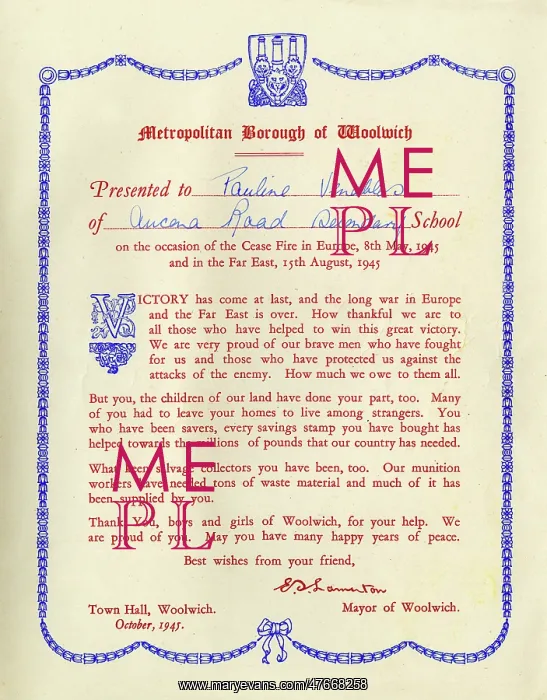 Metropolitan Borough of Woolwich
Presented to Pauline Venables
of Ancona Road Secondary School
on the occasion of the Cease Fire in Europe, 8th May, 1945
and in the Far East, 15th August, 1945
VICTORY has come at last, and the long war in Europe
and the Far East is over. How thankful we are to
all those who have helped to win this great victory.
We are very proud of our brave men who have fought
for us and those who have protected us against the
attacks of the enemy. How much we owe to them all.
But you, the children of our land have done your part, too. Many
of you had to leave your homes to live among strangers. You
who have been savers, every savings stamp you have bought has
helped towards the millions of pounds that our country has needed.
What keen salvage collectors you have been, too. Our munition
workers have needed tons of waste material and much of it has
been supplied by you.
Thank You, boys and girls of Woolwich, for your help. We
are proud of you. May you have many happy years of peace.
Best wishes from your friend,
Town Hall, Woolwich. Mayor of Woolwich.
October, 1945.
ME
PL
ME
PL
www.maryevans.com/47668258